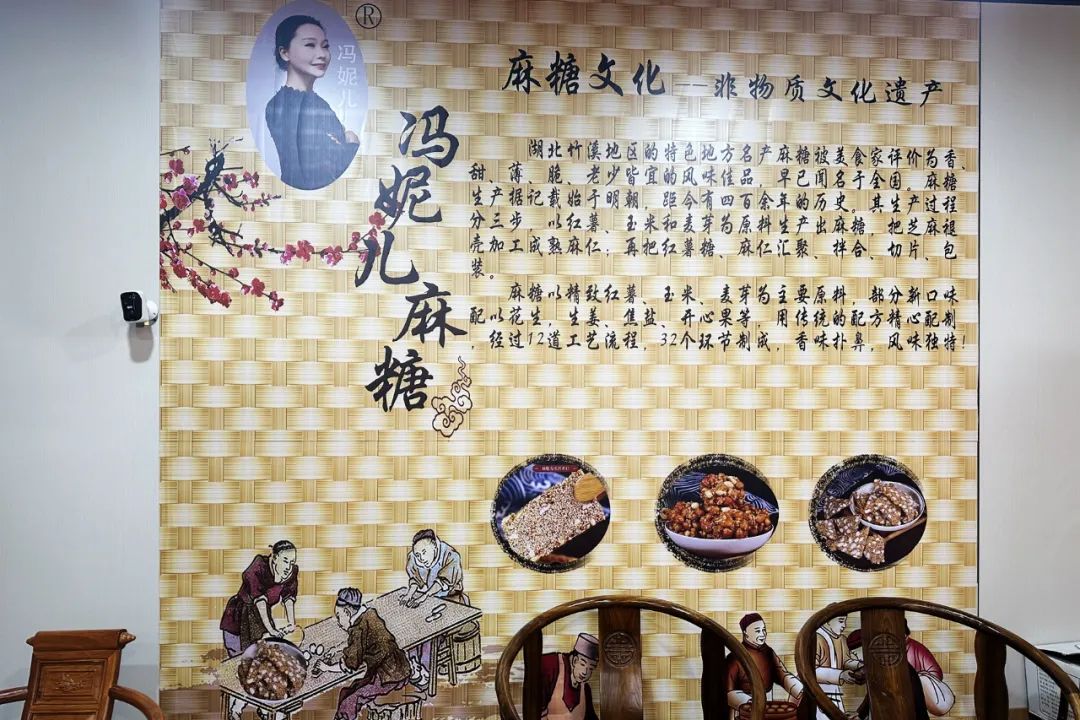 ®
冯妮儿
麻糖文化——非物质文化遗产
冯妮儿麻糖
湖北竹溪地区的特色地方名产麻糖被美食家评价为香、
甜、薄、脆、老少皆宜的风味佳品，早已闻名于全国。麻糖
生产据记载始于明朝，距今有四百余年的历史。其生产过程
分三步，以红薯、玉米和麦芽为原料生产出麻糖，把芝麻褪
壳加工成熟麻仁；再把红薯糖、麻仁汇聚、拌合、切片、包
装。
麻糖以精致红薯、玉米、麦芽为主要原料，部分新口味
配以花生，生姜、焦盐、开心果等，用传统的配方精心配制
，经过12道工艺流程，32个环节制成，香味扑鼻，风味独特！